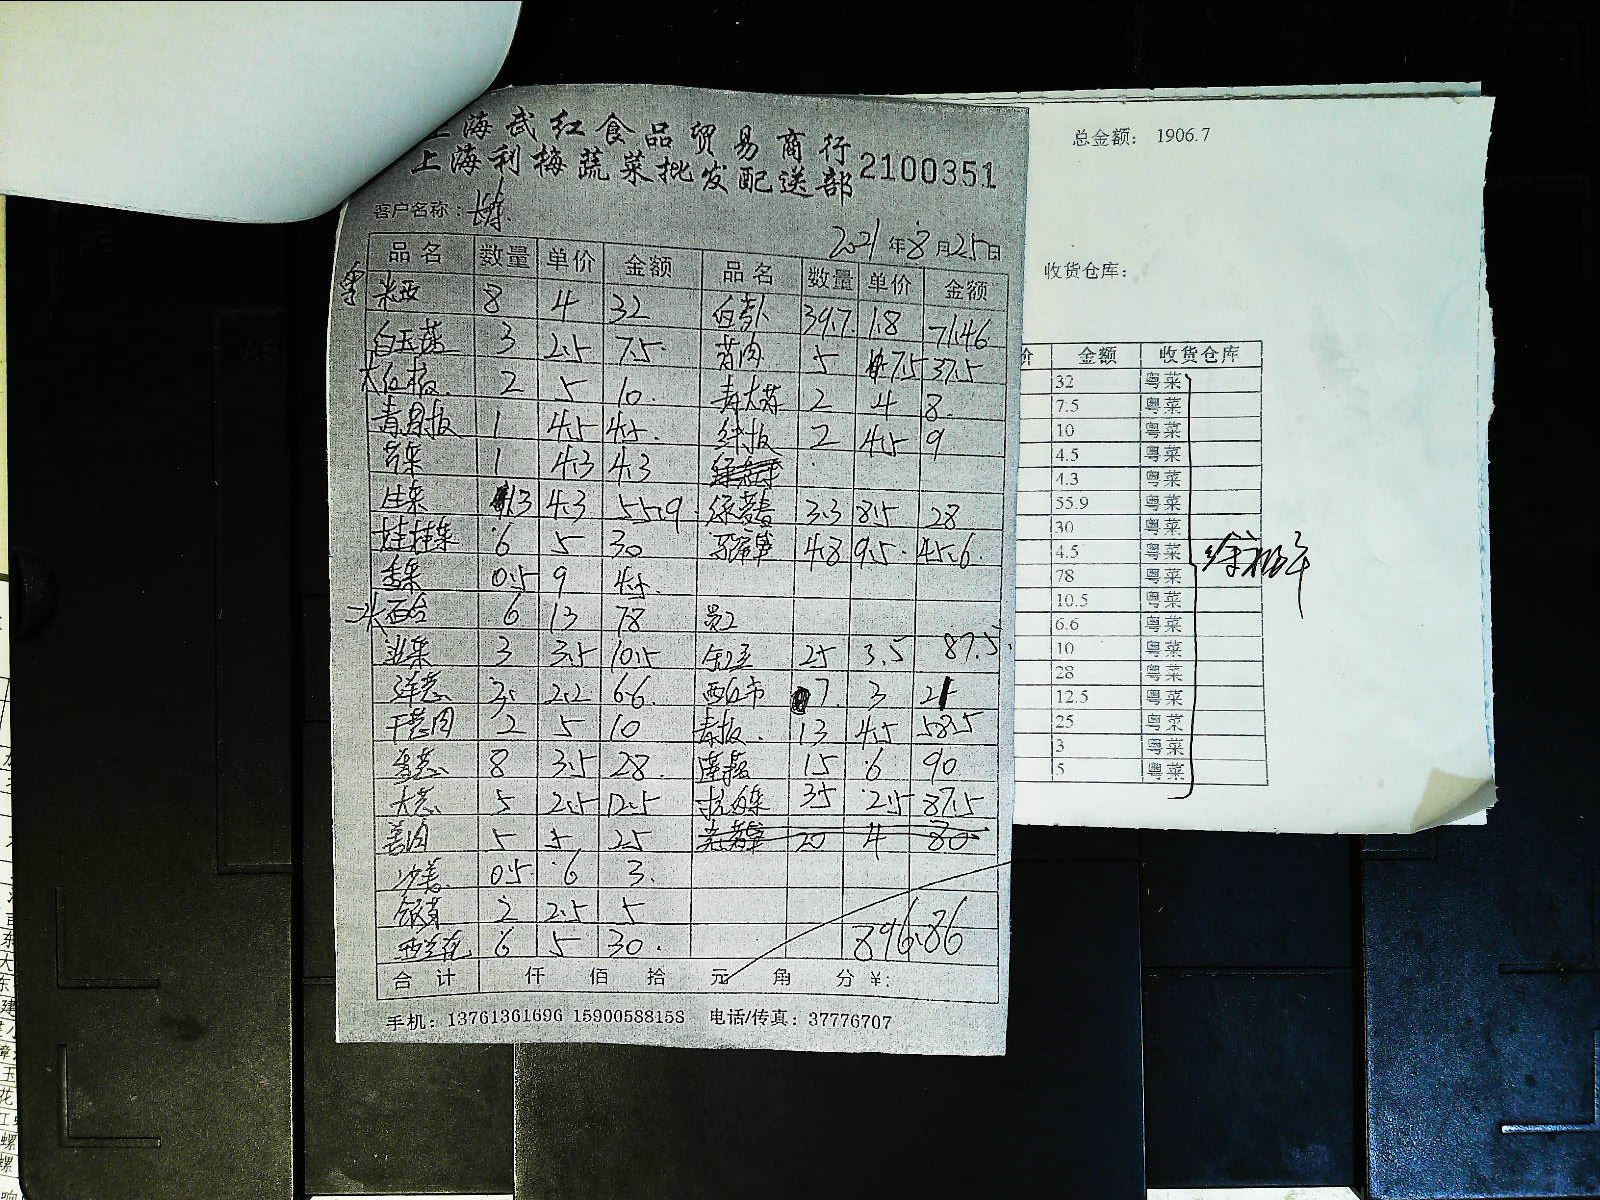 上海武红食品贸易商行
上海利梅蔬菜批发配送部 2100351
客户名称：
2021年8月25日
品名 数量 单价 金额 品名 数量 单价 金额
粤
8 4 32 白萝卜 39.7 1.8 71.46
白玉菇 3 2.5 7.5 5 7.5 37.5
大红椒 2 5 10 2 4 8
1 4.5 4.5 2 4.5 9
1 4.3 4.3
生菜 13 4.3 55.9 3.3 8.5 28
娃娃菜 6 5 30 4.8 9.5 45.6
香菜 0.5 9 4.5
6 13 78 员工
韭菜 3 3.5 10.5 25 3.5 87.5
洋葱 3 2.2 6.6 西红市 7 3 21
2 5 10 青椒 13 4.5 58.5
香葱 8 3.5 28 15 6 90
大葱 5 2.5 12.5 35 2.5 87.5
5 5 25 20 4 80
沙姜 0.5 6 3
银芽 2 2.5 5
西兰花 6 5 30 896.86
合计 仟 佰 拾 元 角 分 ¥:
手机：13761361696 15900588158 电话/传真：37776707
总金额： 1906.7
收货仓库：
价 金额 收货仓库
32 粤菜
7.5 粤菜
10 粤菜
4.5 粤菜
4.3 粤菜
55.9 粤菜
30 粤菜
4.5 粤菜
78 粤菜
10.5 粤菜
6.6 粤菜
10 粤菜
28 粤菜
12.5 粤菜
25 粤菜
3 粤菜
5 粤菜